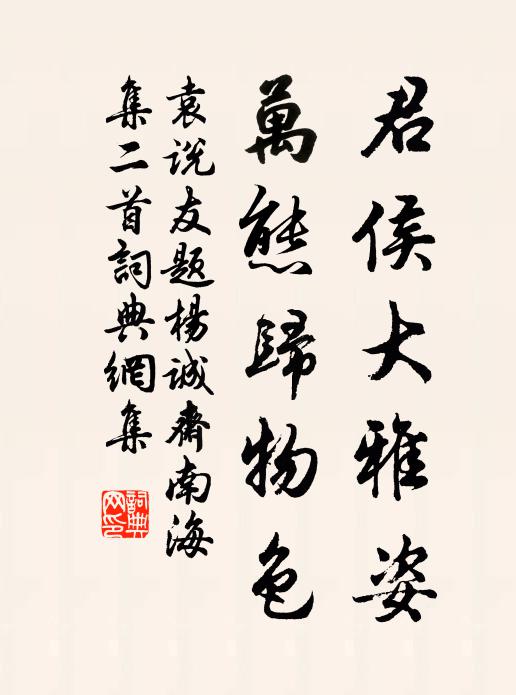 君侯大雅姿
萬態歸物色
袁説友題楊誠齋南海
集二首詞典網集
詞典
网印